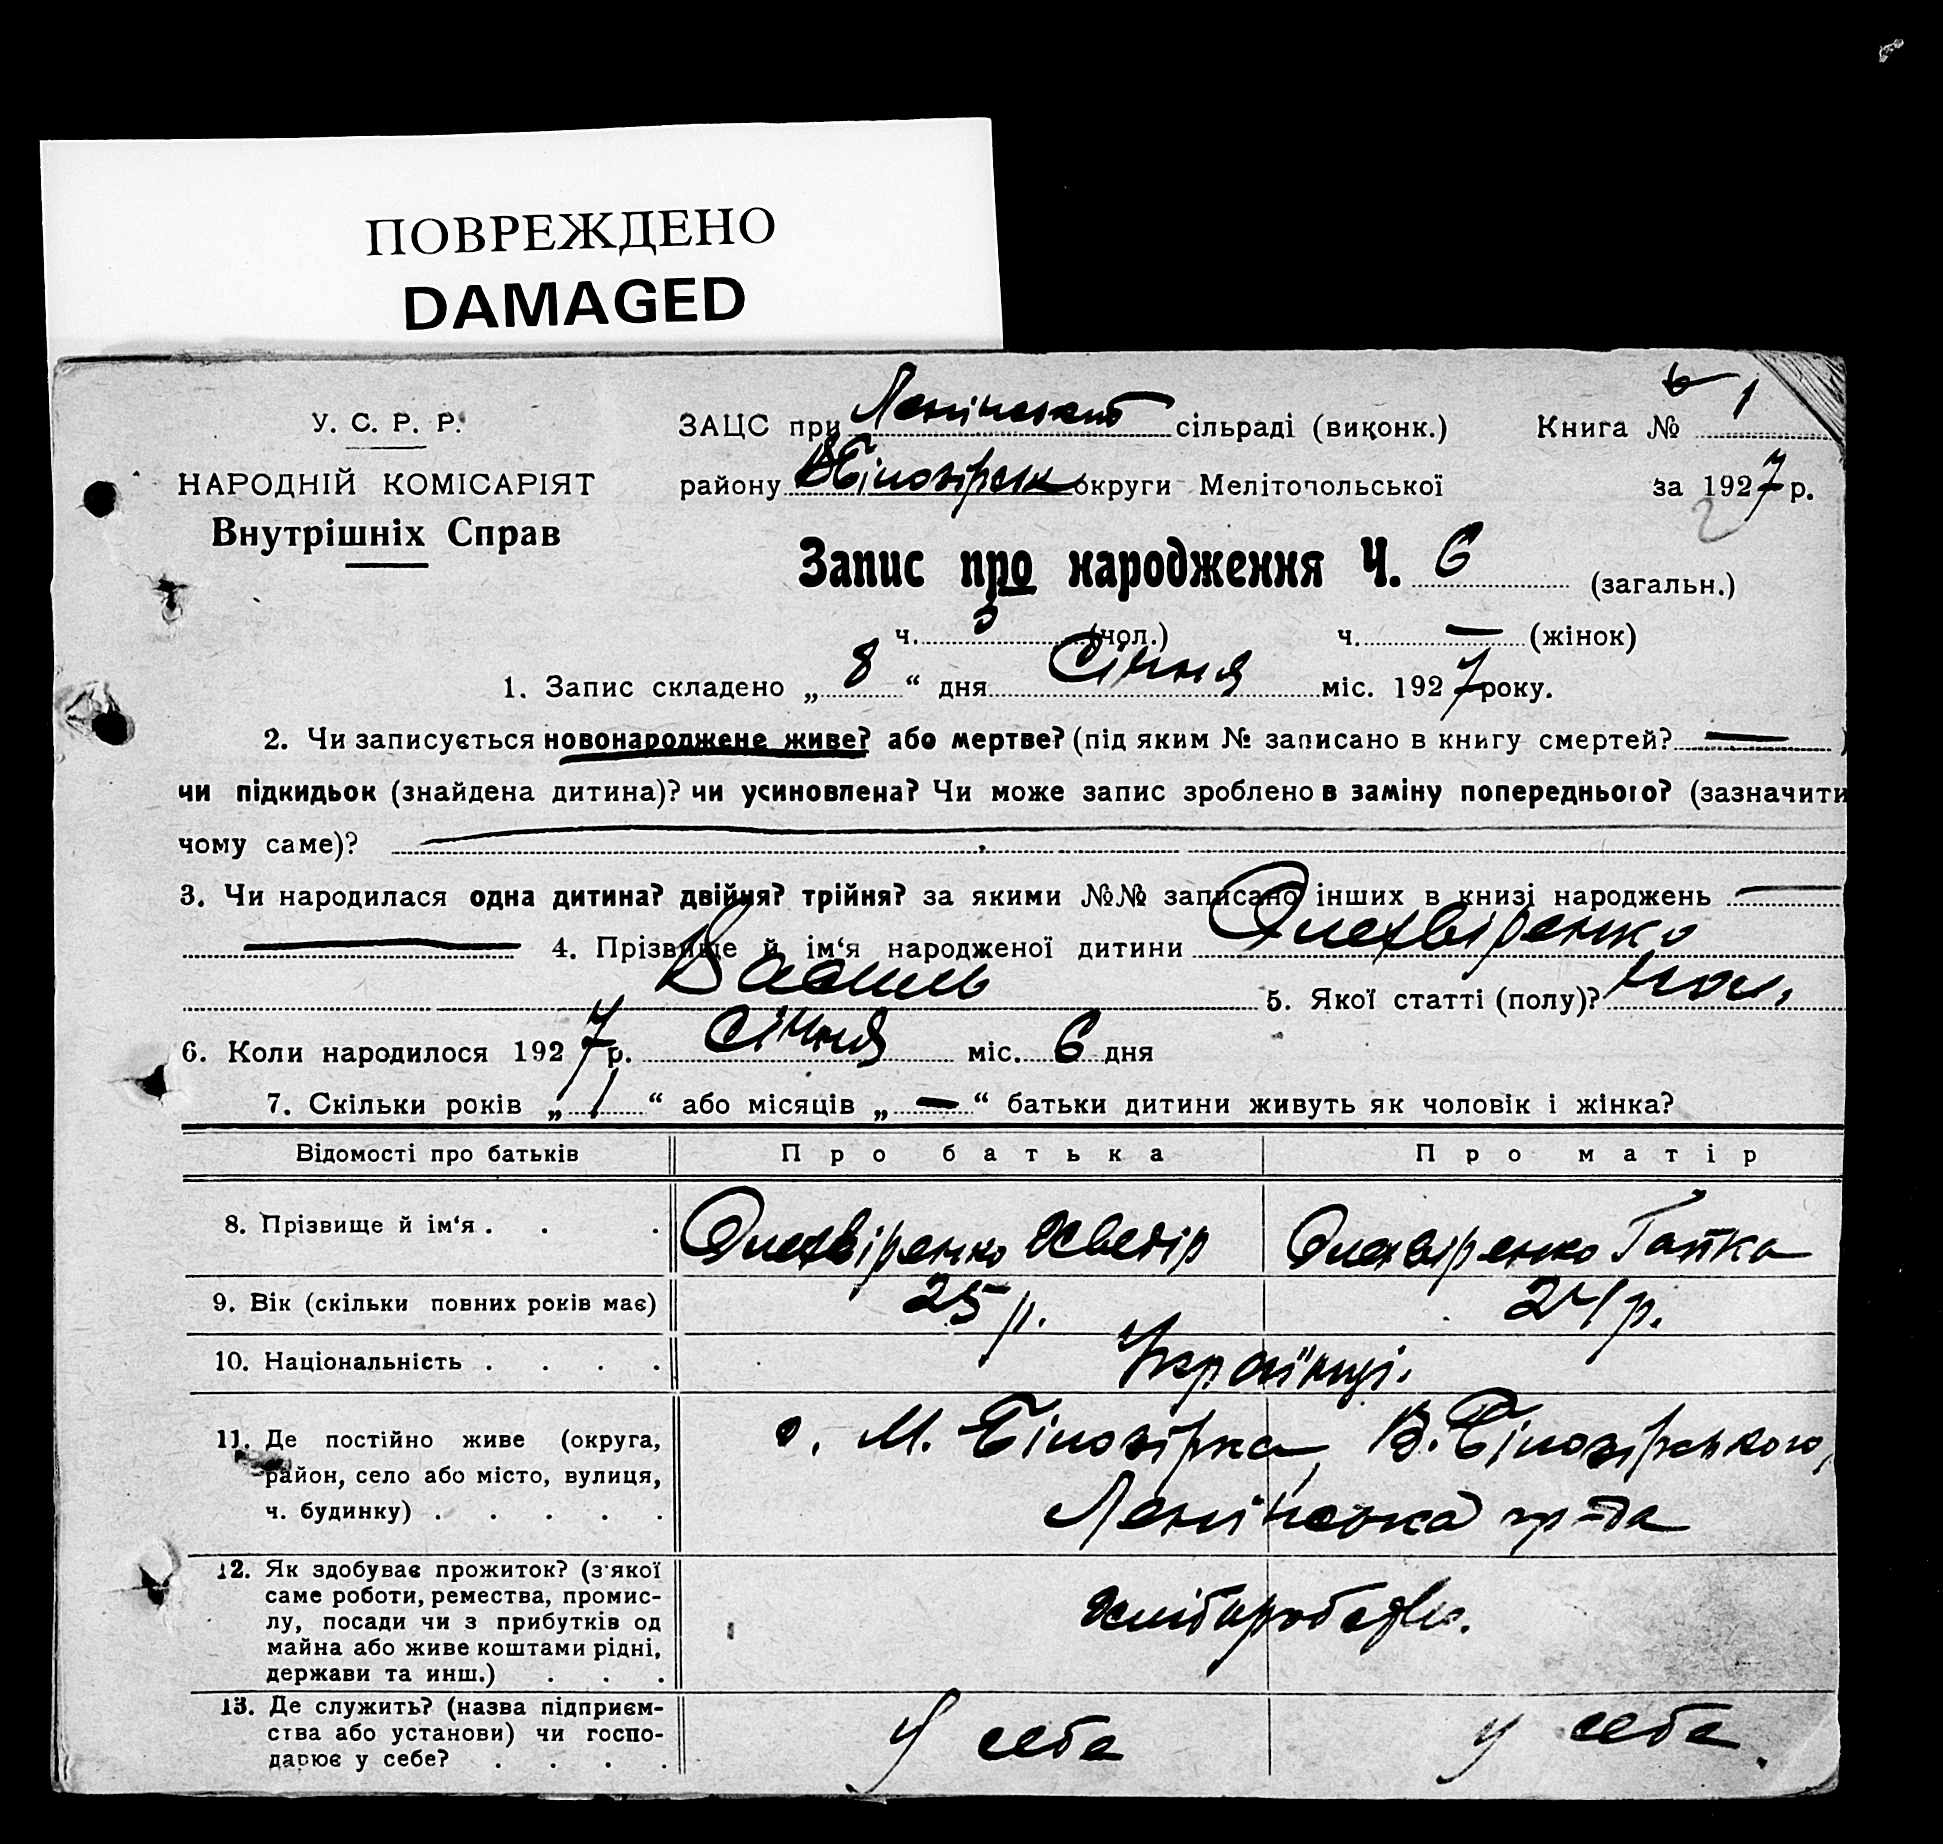 ПОВРЕЖДЕНО
DAMAGED
У. С. Р. Р.
НАРОДНІЙ КОМІСАРІЯТ
Внутрішніх Справ
ЗАЦС при Ленінській сільраді (виконк.) Книга № 6 1
району В Білозірськ округи Мелітопольської за 1927 р.
Запис про народження Ч. 6 (загальн.)
ч. 3 (чол.) ч. — (жінок)
1. Запис складено „ 8 “ дня Січня міс. 1927 року.
2. Чи записується новонароджене живе? або мертве? (під яким № записано в книгу смертей? — )
чи підкидьок (знайдена дитина)? чи усиновлена? Чи може запис зроблено в заміну попереднього? (зазначити
чому саме)?
3. Чи народилася одна дитина? двійня? трійня? за якими №№ записано інших в книзі народжень —
— 4. Прізвище й ім‘я народженої дитини
Василь 5. Якої статті (полу)? чол.
6. Коли народилося 1927 р. Січня міс. 6 дня
7. Скільки років „ 1 “ або місяців „ — “ батьки дитини живуть як чоловік і жінка?
Відомості про батьків Про батька Про матір
8. Прізвище й ім‘я . . . Гапка
9. Вік (скільки повних років має) 25 р. 24 р.
10. Національність . . . . Українці.
11. Де постійно живе (округа, с. М. Білозірка, В. Білозірського,
район, село або місто, вулиця,
ч. будинку) . . . . . Ленінська
12. Як здобуває прожиток? (з‘якої
саме роботи, ремества, промис-
лу, посади чи з прибутків од
майна або живе коштами рідні,
держави та инш.) . . .
13. Де служить? (назва підприєм-
ства або установи) чи госпо-
дарює у себе? . . . . У себе у себе.